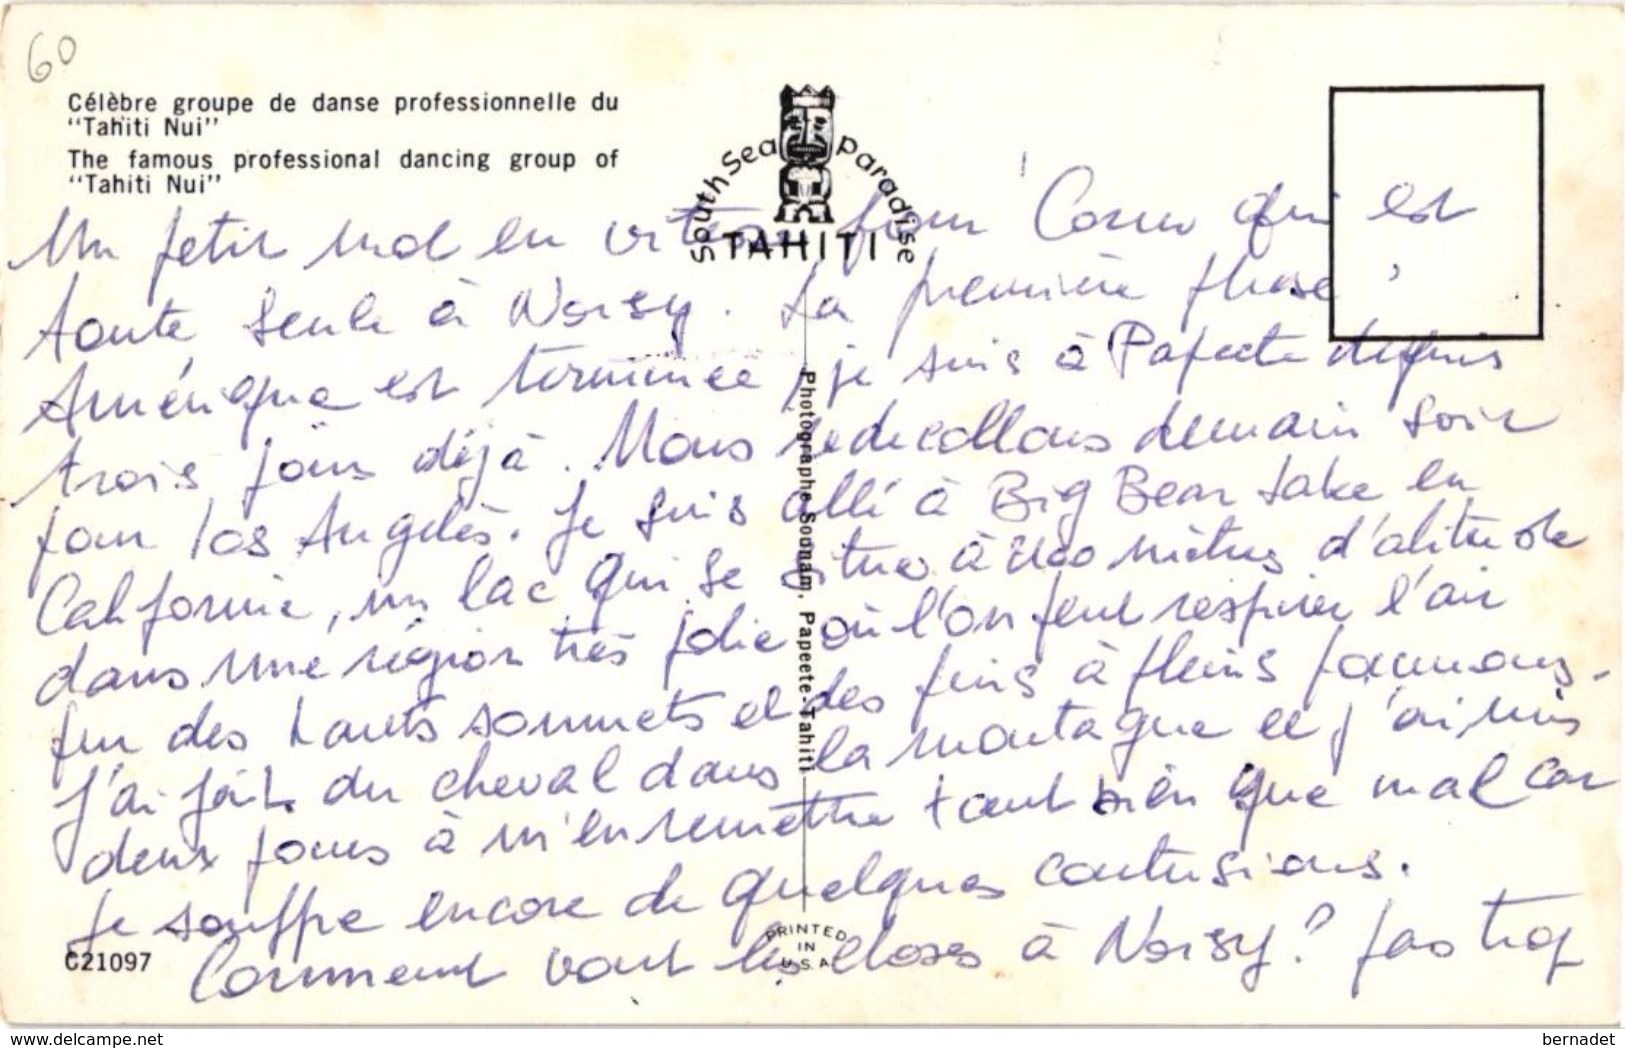 60
Célèbre groupe de danse professionnelle du
"Tahiti Nui"
The famous professional dancing group of
"Tahiti Nui"
South Sea Paradise
TAHITI
Un petit mot en vitesse pour qui est
toute seule à Noisy. La première phase,
Amérique est terminée, je suis à Papeete depuis
trois jours déjà. Nous redecollons demain soir
pour los Angelès. Je suis allé à Big Bear Lake en
Californie, un lac qui se situe à mètres d'altitude
dans une région très jolie où l'on peut respirer l'air
pur des hauts sommets et des pins à pleins poumons.
J'ai fait du cheval dans la montagne et j'ai mis
deux jours à m'en remettre tant bien que mal car
je souffre encore de quelques contusions.
Comment vont les choses à Noisy? pas trop
Photographe Sounam, Papeete-Tahiti
PRINTED
IN
U.S.A
C21097
www.delcampe.net
bernadet